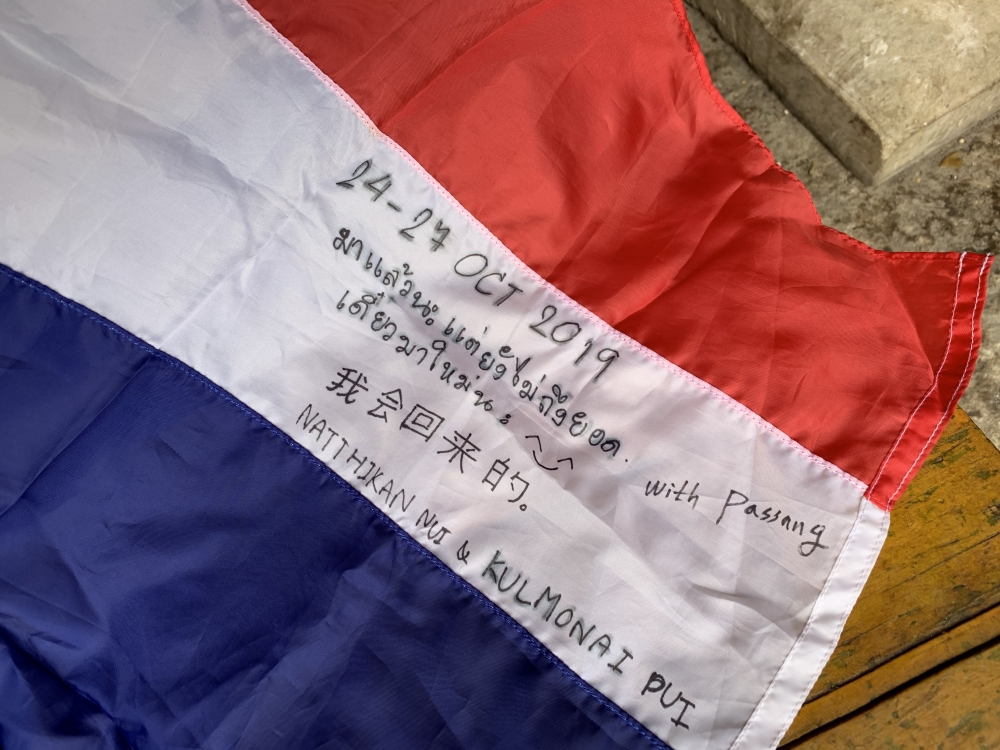 24-27 OCT 2019
มาแล้วนะ แต่ยังไม่ถึงยอด.
เดี๋ยวมาใหม่นะ ^‿^
我会回来的。
with Passang
NATTHIKAN NUI & KULMONAI PUI